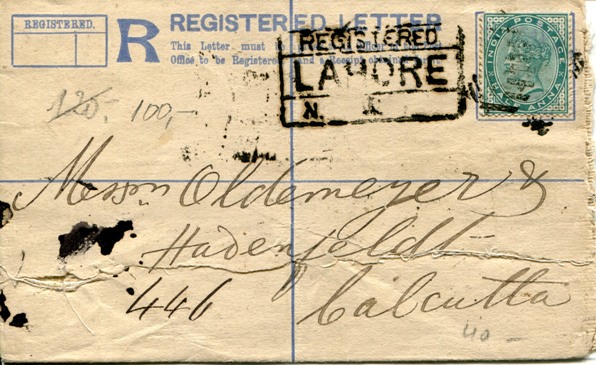 REGISTERED.
R
REGISTERED LETTER
This Letter must
Office to be Registered, and a Receipt obtained
REGISTERED
LAHORE
N.
INDIA POSTAGE
ANNA
120. 100,-
Messrs Oldemeyer &
Hadenfeldt
446 Calcutta
40 -